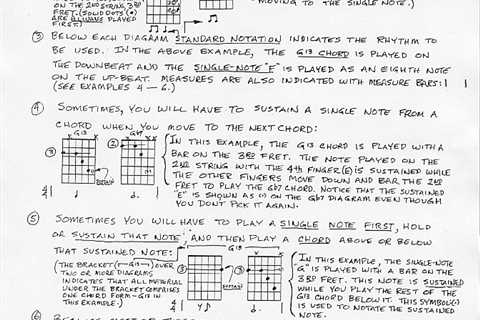 ON THE 2ND STRING, 3RD
FRET. (SOLID DOTS (•)
ARE ALWAYS PLAYED
FIRST.)
MOVING TO THE SINGLE NOTE.)
③ BELOW EACH DIAGRAM STANDARD NOTATION INDICATES THE RHYTHM TO
BE USED. IN THE ABOVE EXAMPLE, THE G13 CHORD IS PLAYED ON
THE DOWNBEAT AND THE SINGLE-NOTE "F" IS PLAYED AS AN EIGHTH NOTE
ON THE UP-BEAT. MEASURES ARE ALSO INDICATED WITH MEASURE BARS: |
(SEE EXAMPLES 4 – 6.)
④ SOMETIMES, YOU WILL HAVE TO SUSTAIN A SINGLE NOTE FROM A
CHORD WHEN YOU MOVE TO THE NEXT CHORD:
G13 Gb7
③ ②
IN THIS EXAMPLE, THE G13 CHORD IS PLAYED WITH A
BAR ON THE 3RD FRET. THE NOTE PLAYED ON THE
2ND STRING WITH THE 4TH FINGER (E) IS SUSTAINED WHILE
THE OTHER FINGERS MOVE DOWN AND BAR THE 2ND
FRET TO PLAY THE Gb7 CHORD. NOTICE THAT THE SUSTAINED
"E" IS SHOWN AS (•) ON THE Gb7 DIAGRAM EVEN THOUGH
YOU DON'T PICK IT AGAIN.
4/4
⑤ SOMETIMES YOU WILL HAVE TO PLAY A SINGLE NOTE FIRST, HOLD
OR SUSTAIN THAT NOTE, AND THEN PLAY A CHORD ABOVE OR BELOW
THAT SUSTAINED NOTE:
G13
(THE BRACKET (┌─G13─┐) OVER
TWO OR MORE DIAGRAMS
INDICATES THAT ALL MATERIAL
UNDER THE BRACKET COMPRISES
ONE CHORD FORM – G13 IN
THIS EXAMPLE.)
③ ③
4/4
IN THIS EXAMPLE, THE SINGLE-NOTE
"G" IS PLAYED WITH A BAR ON THE
3RD FRET. THIS NOTE IS SUSTAINED
WHILE YOU PLAY THE REST OF THE
G13 CHORD BELOW IT. THIS SYMBOL (◦)
IS USED TO NOTATE THE SUSTAINED
NOTE.
⑥